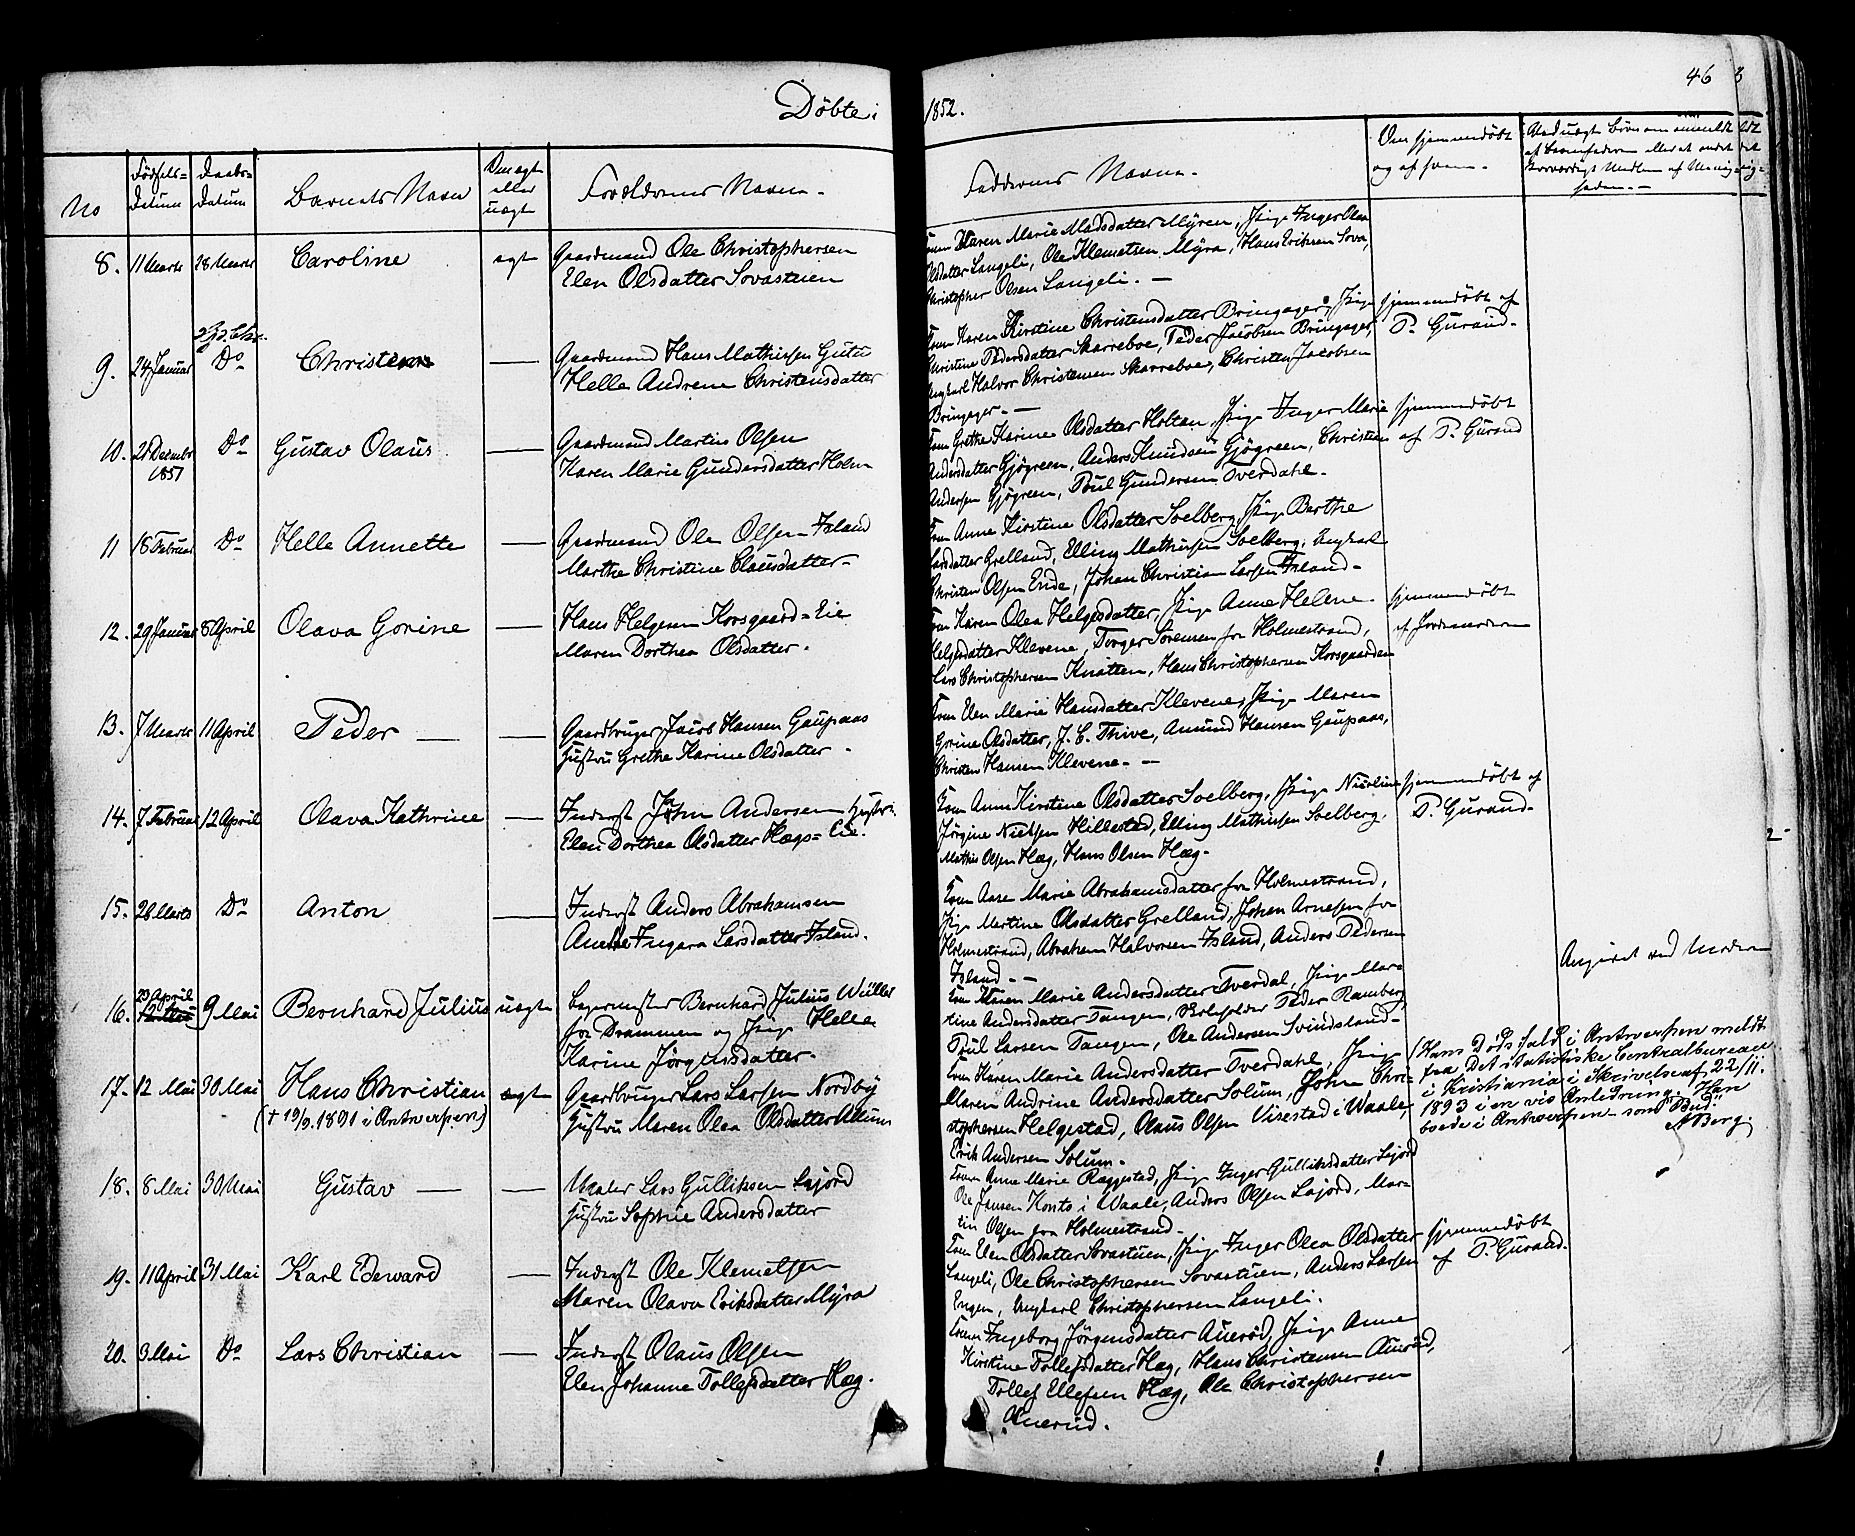 Döbte i 1852.
46
No
Födsels-
Datum
Daabs-
Datum
Barnets Navn
Om ægte
eller
uægte
Forældrenes Navne.
Faddernes Navne.
Om hjemmedöbt
og af hvem.
8. 11 Marts 28 Marts Caroline ægte
Gaardmand Ole Christophersen
Elen Olsdatter Sovastuen
Maren Marie Madsdatter Myren, Pige Inger Olea
Olsdatter Langeli, Ole Klemetsen Myra, Hans Eriksen Sova,
Christopher Olsen Langeli. —
9. 24 Januar Do Christen —
Gaardmand Hans Mathisen Gutu
Helle Andrene Christensdatter
Karen Kirstine Christensdatter Bringager, Pige
Christine Pedersdatter Skarreboe, Peder Jacobsen Bringager,
Ungkarl Halvor Christensen Skarreboe, Christen Jacobsen
Bringager. —
hjemmedöbt af
P. Gurand.
10. 28 December
1851
Do Gustav Olaus —
Gaardmand Martin Olsen
Karen Marie Gundersdatter Holm
Grethe Karine Olsdatter Holtan, Pige Inger Marie
Andersdatter Gjögreen, Anders Knudsen Gjögreen, Christian
Andersen Gjögreen, Poul Gundersen Tverdahl.
hjemmedöbt
af P. Gurand
11 18 Februar Do Helle Annette —
Gaardmand Ole Olsen Island
Marthe Christine Clausdatter
Anne Kirstine Olsdatter Soelberg, Pige Berthe
Larsdatter Grelland, Elling Mathisen Soelberg, Ungkarl
Christen Olsen Ende, Johan Christian Larsen Island
12. 29 Januar 8 April Olava Gorine —
Hans Helgesen Korsgaard-Eie
Maren Dorthea Olsdatter.
Karen Olea Helgesdatter, Pige Anne Helene
Helgesdatter Klevene, Torger Sörensen fra Holmestrand,
Lars Christophersen Knatten, Hans Christophersen Korsgaarden
hjemmedöbt
af Jordemoderen
13. 7 Marts 11 April Peder —
Gaardbruger Jacob Hansen Gaupaas
Hustru Grethe Karine Olsdatter
Elen Marie Hansdatter Klevene, Pige Maren
Gorine Olsdatter, J. C. Thive, Amund Hansen Gaupaas,
Christen Hansen Klevene. —
14. 7 Februar 12 April Olava Kathrine —
Inderst John Andersen Hustru
Elen Dorthea Olsdatter Hægs-Eie.
Anne Kirstine Olsdatter Soelberg, Pige Nicoline
Jörgine Nielsen Hillestad, Elling Mathisen Soelberg,
Mathis Olsen Hæg, Hans Olsen Hæg.
hjemmedöbt af
P. Gurand.
15. 28 Marts Do Anton —
Inderst Anders Abrahamsen
Inger Larsdatter Island.
Anne Marie Abrahamsdatter fra Holmestrand,
Pige Martine Olsdatter Grelland, Johan Arnesen fra
Holmestrand, Abraham Halvorsen Island, Anders Pedersen
Island —
16. 23 April 9 Mai Bernhard Julius uægte
Bernhard Julius Wüller
fra Drammen og Pige Helle
Karine Jörgensdatter.
Karen Marie Andersdatter Tverdal, Pige Mar-
tine Andersdatter Tangen, Peder Ramberg,
Poul Larsen Tangen, Ole Andersen Svindsland
Angivet ved Moderen
17. 12 Mai 30 Mai Hans Christian ægte
(† 19/9. 1891 i Antwerpen)
Gaardbruger Lars Larsen Nordby
Hustru Maren Olea Olsdatter
Karen Marie Andersdatter Tverdahl, Pige
Maren Andrine Andersdatter Solum, John Chri-
stophersen Helgestad, Olaus Olsen Virestad i Waale,
Erik Andersen Solum.
(Hans Dödsfald i Antwerpen meldt
fra Det statistiske Centralbureau
i Kristiania i Skrivelse af 22/11.
1893 i en vis Anledning. Han
boede i Antwerpen som "Bud".
ABerg.
18. 8 Mai 30 Mai Gustav —
Maler Lars Gulliksen Lajord
Hustru Sophie Andersdatter
Anne Marie Raggestad, Pige Inger Gulliksdatter Lajord
Ole Jansen Konto i Waale, Anders Olsen Lajord, Mar-
tin Olsen fra Holmestrand.
19. 11 April 31 Mai Karl Edeward —
Inderst Ole Klemetsen
Maren Olava Eriksdatter Myra
Elen Olsdatter Sovastuen, Pige Inger Olea Olsdatter
Langeli, Ole Christophersen Sovastuen, Anders Larsen
Engen, Ungkarl Christophersen Langeli.
hjemmedöbt
af P. Gurand.
20. 3 Mai Do Lars Christian —
Inderst Olaus Olsen
Elen Johanne Tollefsdatter Hæg.
Ingeborg Jörgensdatter Aueröd, Pige Anne
Kirstine Tollefsdatter Hæg, Hans Christensen Aueröd,
Tollef Ellefsen Hæg, Ole Christophersen
Aueröd.